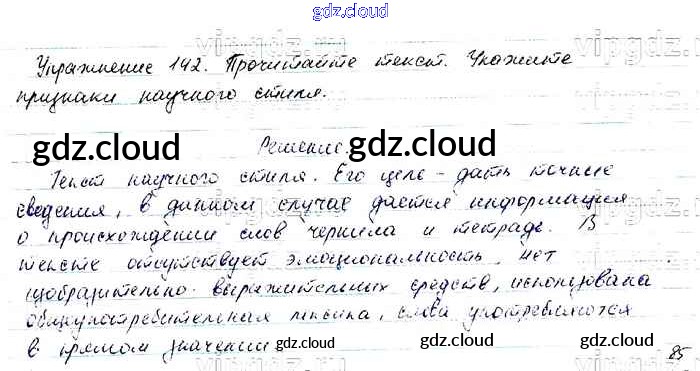 gdz.cloud
vipgdz.c vipgdz
Упражнение 142. Прочитайте текст. Укажите
признаки научного стиля.
gdz.cloud gdz.cloud
Решение.
Текст научного стиля. Его цель - дать точные
сведения, в данном случае дается информация
о происхождении слов чернила и тетрадь. В
тексте отсутствует эмоциональность, нет
изобразительно-выразительных средств, использована
общеупотребительная лексика, слова употребляются
в прямом значении
gdz.cloud gdz.cloud
85